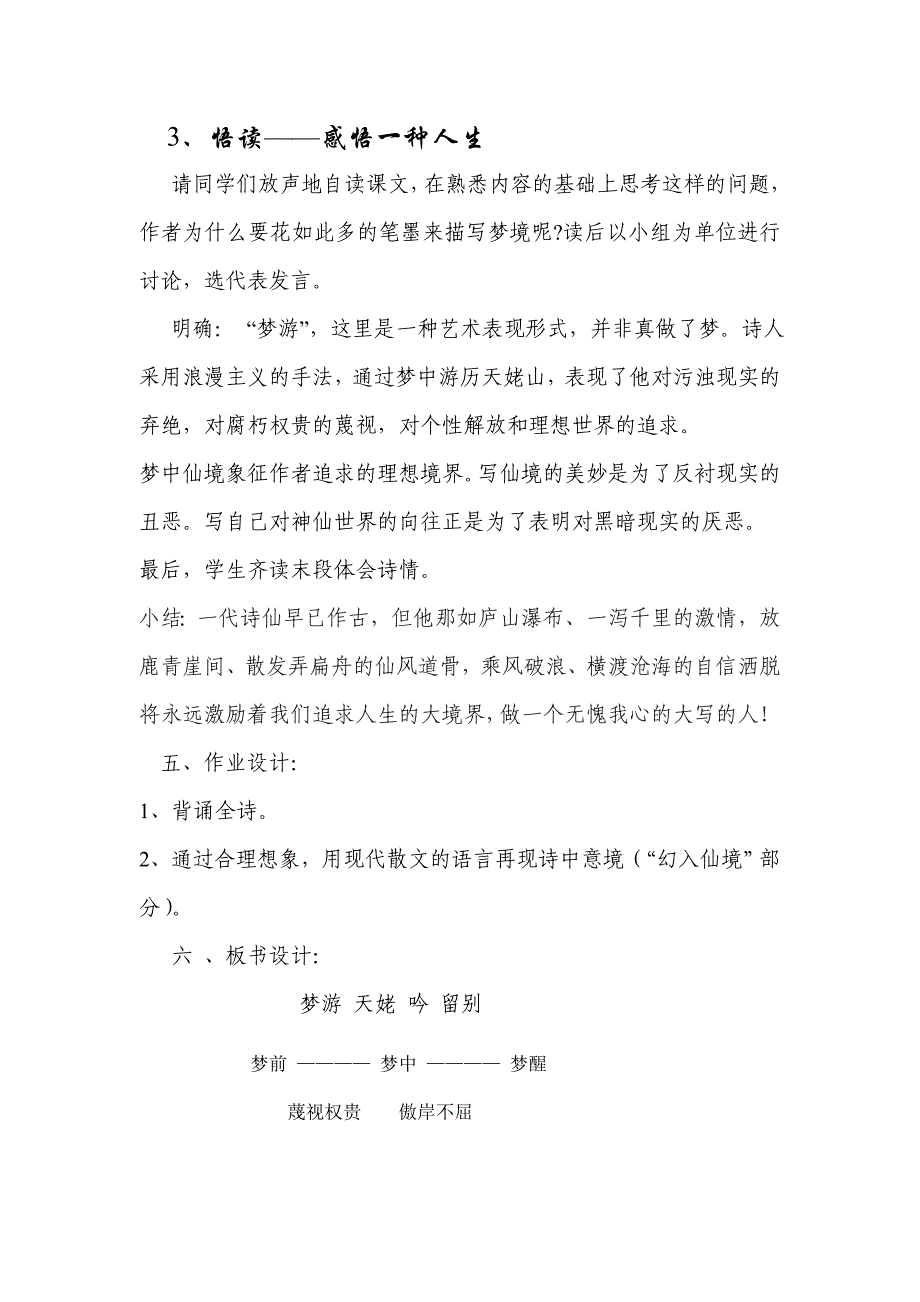 3、悟读——感悟一种人生
请同学们放声地自读课文，在熟悉内容的基础上思考这样的问题，
作者为什么要花如此多的笔墨来描写梦境呢?读后以小组为单位进行
讨论，选代表发言。
明确： “梦游”，这里是一种艺术表现形式，并非真做了梦。诗人
采用浪漫主义的手法，通过梦中游历天姥山，表现了他对污浊现实的
弃绝，对腐朽权贵的蔑视，对个性解放和理想世界的追求。
梦中仙境象征作者追求的理想境界。写仙境的美妙是为了反衬现实的
丑恶。写自己对神仙世界的向往正是为了表明对黑暗现实的厌恶。
最后，学生齐读末段体会诗情。
小结：一代诗仙早已作古，但他那如庐山瀑布、一泻千里的激情，放
鹿青崖间、散发弄扁舟的仙风道骨，乘风破浪、横渡沧海的自信洒脱
将永远激励着我们追求人生的大境界，做一个无愧我心的大写的人！
五、作业设计：
1、背诵全诗。
2、通过合理想象，用现代散文的语言再现诗中意境（“幻入仙境”部
分）。
六 、板书设计：
梦游 天姥 吟 留别
梦前 ———— 梦中 ———— 梦醒
蔑视权贵 傲岸不屈